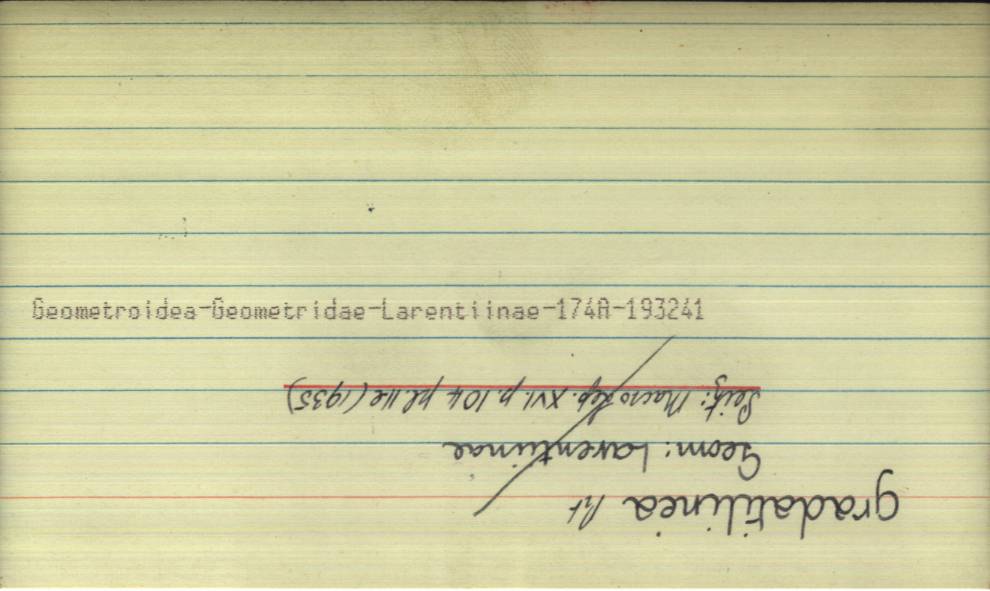 Geometroidea-Geometridae-Larentiinae-174A-193241
gradatilinea Prt
Geom: Larentiinae
Seitz: Macrolep. XVI. p.104 pl.11-e (1935)